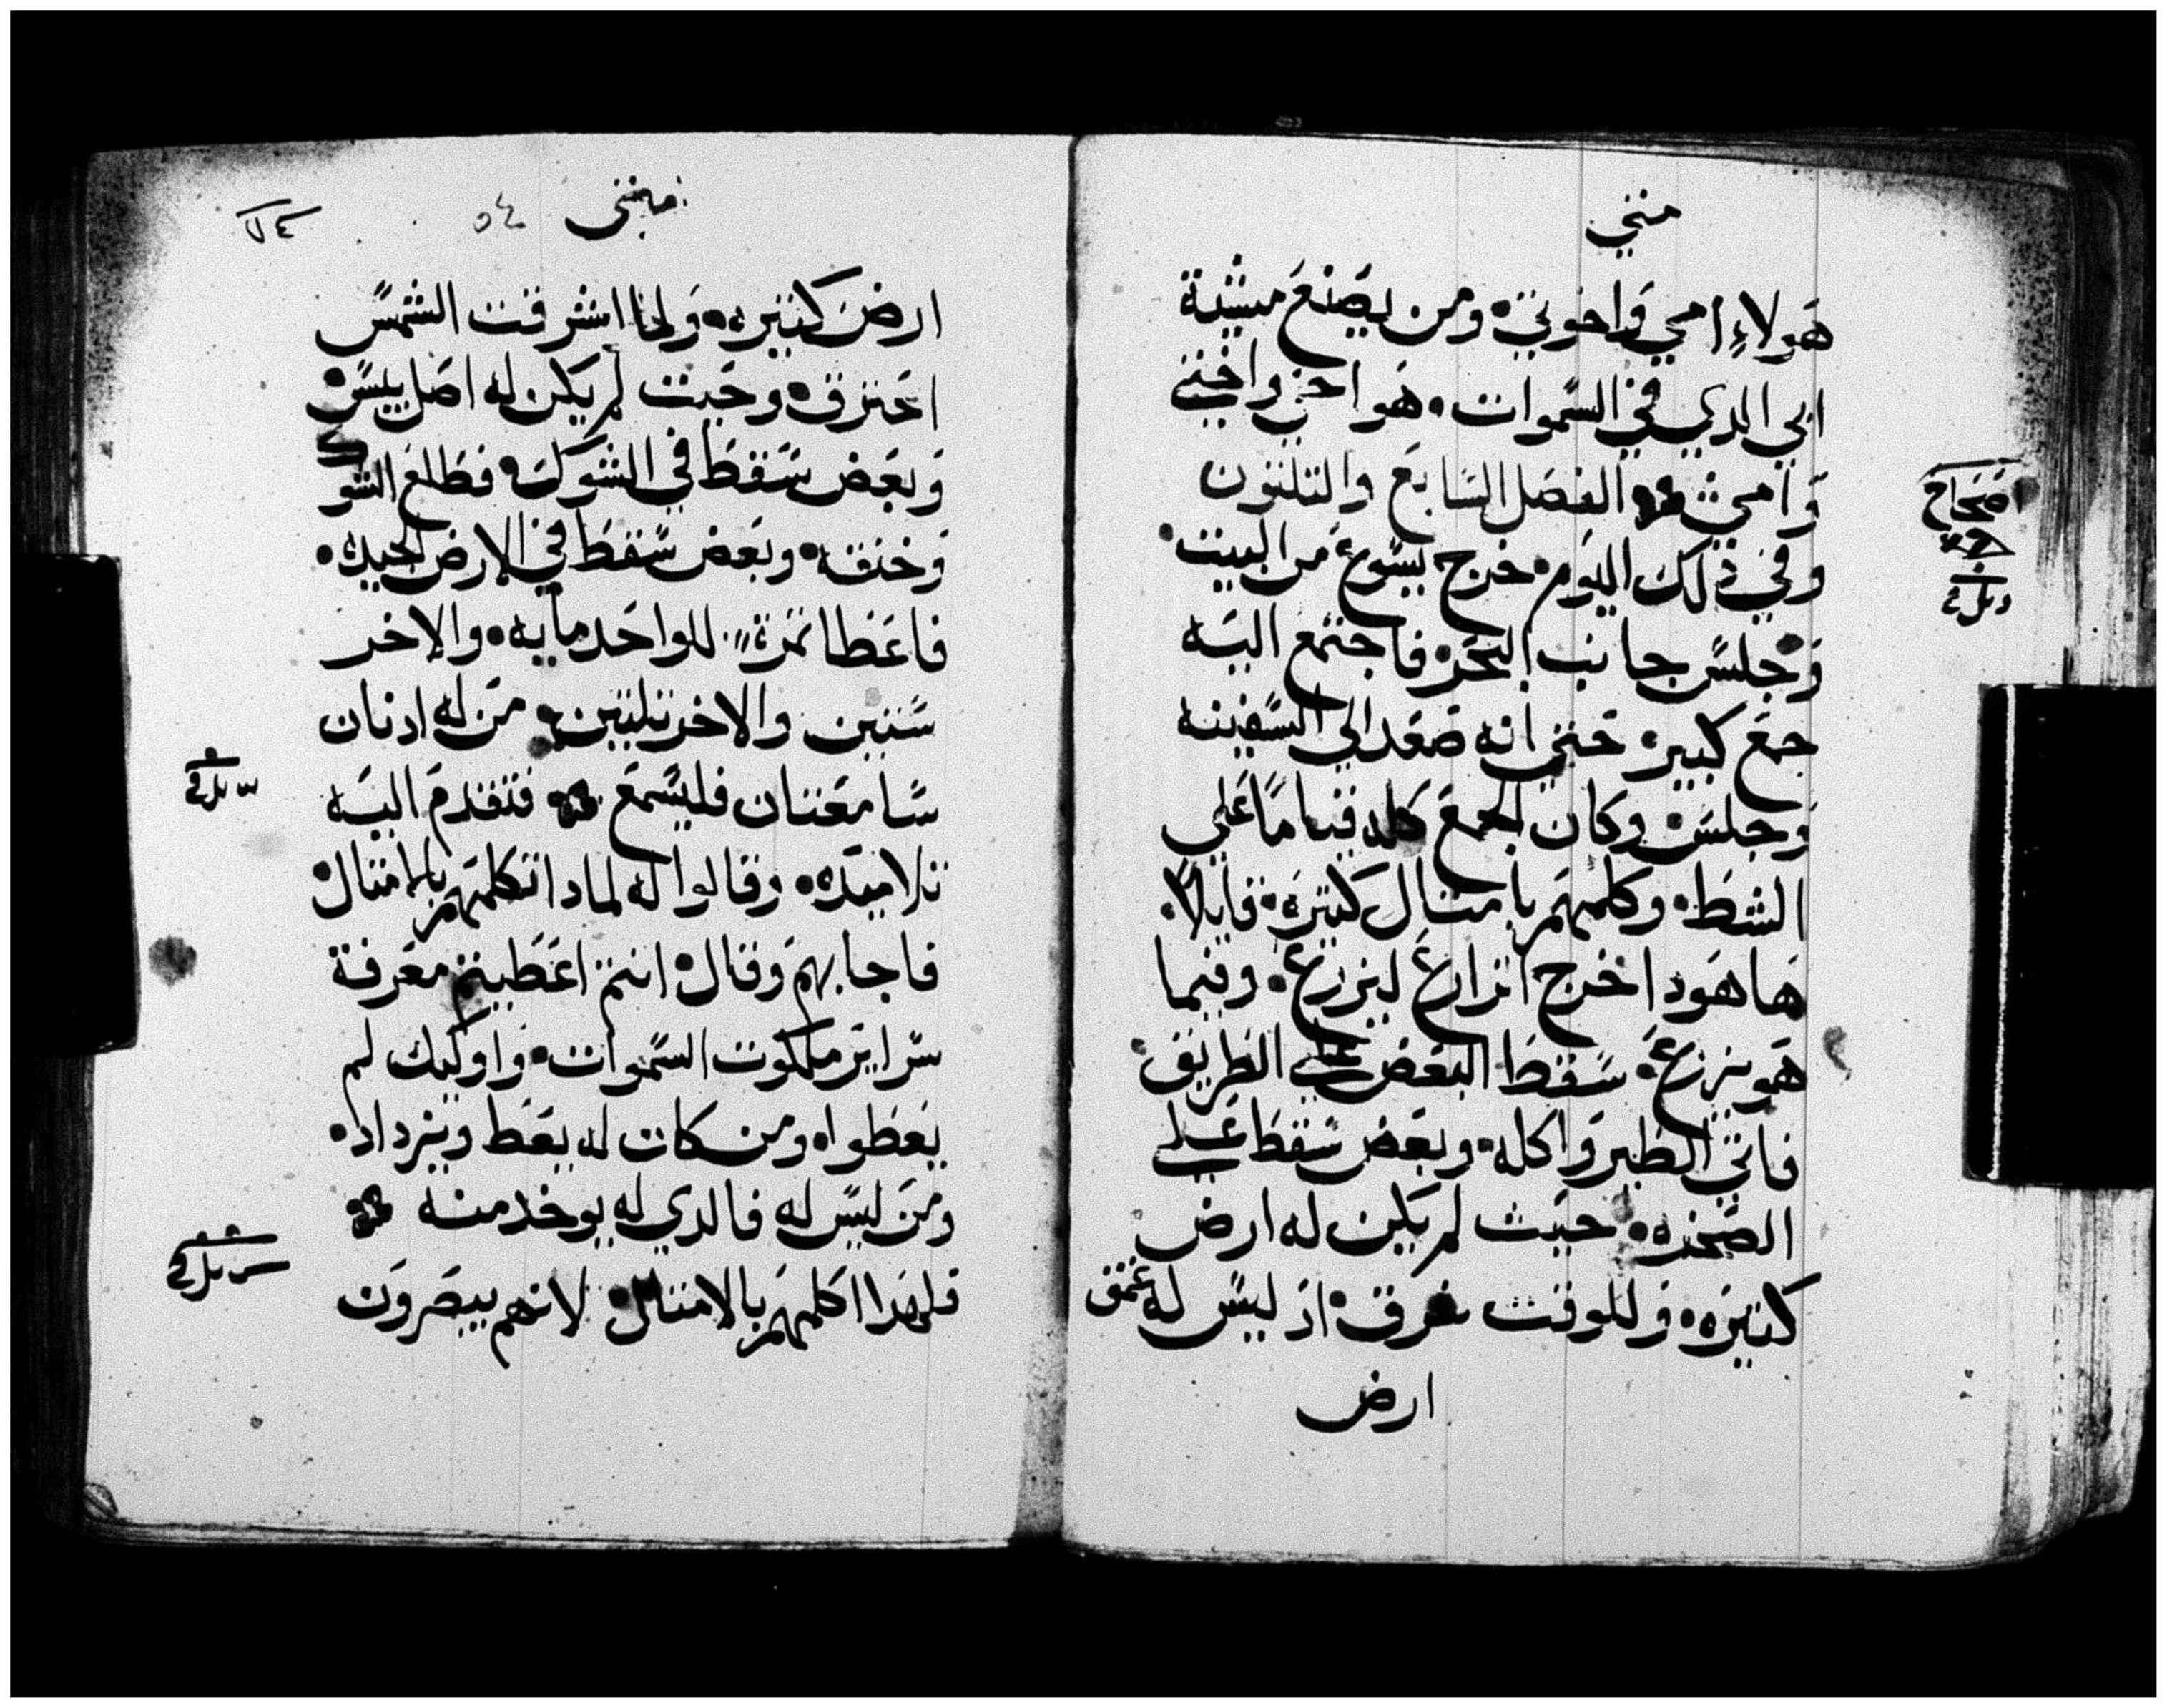 متي
هولاء امي واخوتي ومن يصنع مشية
ابي الدي في السموات هو اخي واختي
وامي الفصل السابع والتلتون
وفي ذلك اليوم خرج يسوع من البيت
وجلس جانب البحر فاجتمع اليه
جمع كبير حتي انه صعد الي السفينه
وجلس وكان الجمع كله قياما علي
الشط وكلمهم بامتال كتيره قايلا
ها هودا خرج الزارع ليزرع وفيما
هو يزرع سقط البعض علي الطريق
فاتي الطير واكله وبعض سقط علي
الصخره حيت لم يكن له ارض
كتيره وللوقت شرق اد ليس له عمق
ارض
اصحاح
متي
٥٤
ارض كتيره ولما اشرقت الشمس
احترق وحيت لم يكن له اصل يبس
وبعض سقط في الشوك فطلع الشوك
وخنقه وبعض سقط في الارض الجيده
فاعطا تمرة للواحد مايه والاخر
ستين والاخر تلتين من له ادنان
سامعتان فليسمع فتقدم اليه
تلاميده وقالوا له لمادا تكلمهم بالامتال
فاجابهم وقال انتم اعطيتم معرفة
سراير ملكوت السموات واوليك لم
يعطوا ومن كان له يعط ويزداد
ومن ليس له فالدي له يوخد منه
فلهدا اكلمهم بالامتال لانهم يبصرون